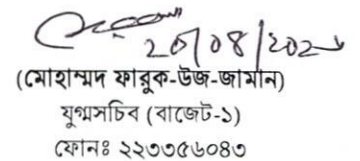 (মোহাম্মদ ফারুক-উজ-জামান)
যুগ্মসচিব (বাজেট-১)
ফোনঃ ২২৩৩৫৬০৪৩